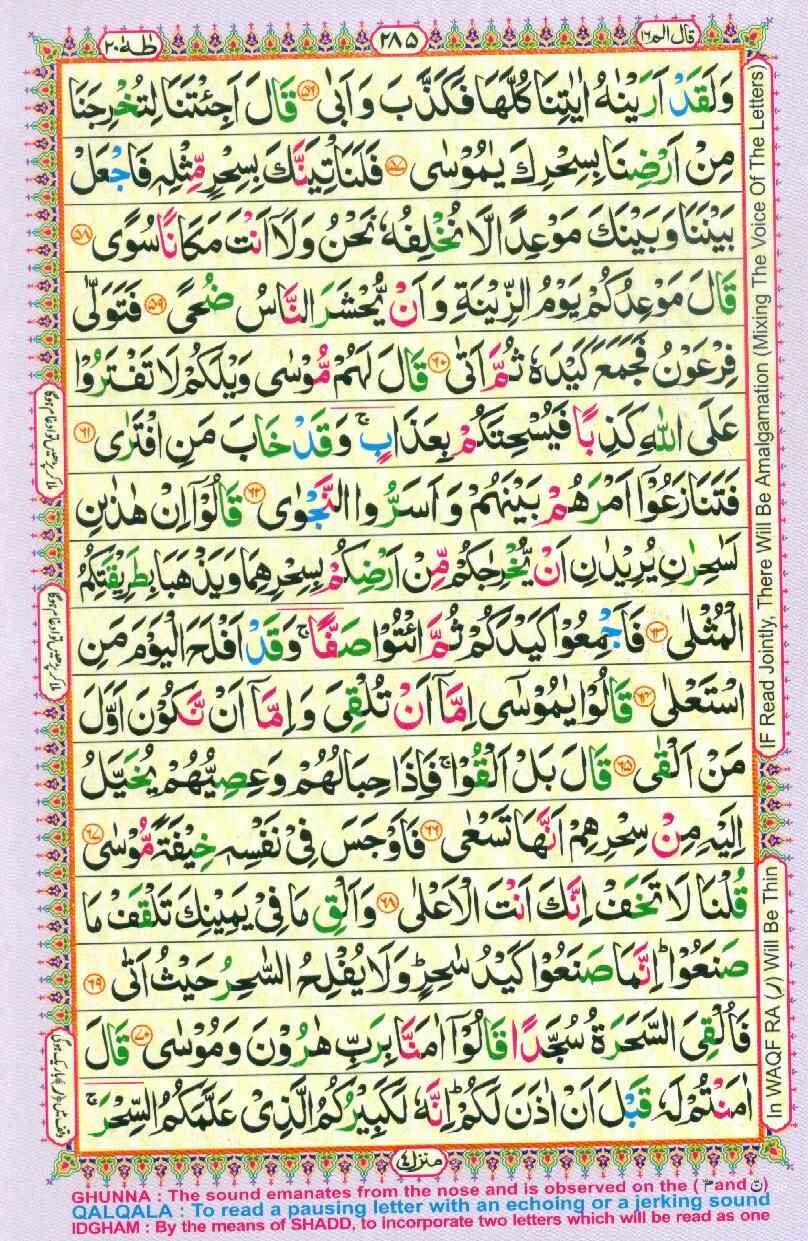 قال الم ١٦
٢٨٥
طٰهٰ ٢٠
وَلَقَدْ اَرَيْنٰهُ اٰيٰتِنَا كُلَّهَا فَكَذَّبَ وَاَبٰى ﴿٥٦﴾ قَالَ اَجِئْتَنَا لِتُخْرِجَنَا
مِنْ اَرْضِنَا بِسِحْرِكَ يٰمُوْسٰى ﴿٥٧﴾ فَلَنَاْتِيَنَّكَ بِسِحْرٍ مِّثْلِهٖ فَاجْعَلْ
بَيْنَنَا وَبَيْنَكَ مَوْعِدًا لَّا نُخْلِفُهٗ نَحْنُ وَلَاۤ اَنْتَ مَكَانًا سُوًى ﴿٥٨﴾
قَالَ مَوْعِدُكُمْ يَوْمُ الزِّيْنَةِ وَاَنْ يُّحْشَرَ النَّاسُ ضُحًى ﴿٥٩﴾ فَتَوَلّٰى
فِرْعَوْنُ فَجَمَعَ كَيْدَهٗ ثُمَّ اَتٰى ﴿٦٠﴾ قَالَ لَهُمْ مُّوْسٰى وَيْلَكُمْ لَا تَفْتَرُوْا
عَلَى اللّٰهِ كَذِبًا فَيُسْحِتَكُمْ بِعَذَابٍ ۚ وَقَدْ خَابَ مَنِ افْتَرٰى ﴿٦١﴾
فَتَنَازَعُوْۤا اَمْرَهُمْ بَيْنَهُمْ وَاَسَرُّوا النَّجْوٰى ﴿٦٢﴾ قَالُوْۤا اِنْ هٰذٰىنِ
لَسٰحِرٰنِ يُرِيْدٰنِ اَنْ يُّخْرِجٰكُمْ مِّنْ اَرْضِكُمْ بِسِحْرِهِمَا وَيَذْهَبَا بِطَرِيْقَتِكُمُ
الْمُثْلٰى ﴿٦٣﴾ فَاَجْمِعُوْا كَيْدَكُمْ ثُمَّ ائْتُوْا صَفًّا ۚ وَقَدْ اَفْلَحَ الْيَوْمَ مَنِ
اسْتَعْلٰى ﴿٦٤﴾ قَالُوْا يٰمُوْسٰۤى اِمَّاۤ اَنْ تُلْقِيَ وَاِمَّاۤ اَنْ نَّكُوْنَ اَوَّلَ
مَنْ اَلْقٰى ﴿٦٥﴾ قَالَ بَلْ اَلْقُوْا ۚ فَاِذَا حِبَالُهُمْ وَعِصِيُّهُمْ يُخَيَّلُ
اِلَيْهِ مِنْ سِحْرِهِمْ اَنَّهَا تَسْعٰى ﴿٦٦﴾ فَاَوْجَسَ فِيْ نَفْسِهٖ خِيْفَةً مُّوْسٰى ﴿٦٧﴾
قُلْنَا لَا تَخَفْ اِنَّكَ اَنْتَ الْاَعْلٰى ﴿٦٨﴾ وَاَلْقِ مَا فِيْ يَمِيْنِكَ تَلْقَفْ مَا
صَنَعُوْا ؕ اِنَّمَا صَنَعُوْا كَيْدُ سٰحِرٍ ؕ وَلَا يُفْلِحُ السّٰحِرُ حَيْثُ اَتٰى ﴿٦٩﴾
فَاُلْقِيَ السَّحَرَةُ سُجَّدًا قَالُوْۤا اٰمَنَّا بِرَبِّ هٰرُوْنَ وَمُوْسٰى ﴿٧٠﴾ قَالَ
اٰمَنْتُمْ لَهٗ قَبْلَ اَنْ اٰذَنَ لَكُمْ ؕ اِنَّهٗ لَكَبِيْرُكُمُ الَّذِيْ عَلَّمَكُمُ السِّحْرَ ۚ
IF Read Jointly, There Will Be Amalgamation (Mixing The Voice Of The Letters)
In WAQF RA (ر) Will Be Thin
منزل ٤
GHUNNA : The sound emanates from the nose and is observed on the ( م and ن )
QALQALA : To read a pausing letter with an echoing or a jerking sound
IDGHAM : By the means of SHADD, to incorporate two letters which will be read as one